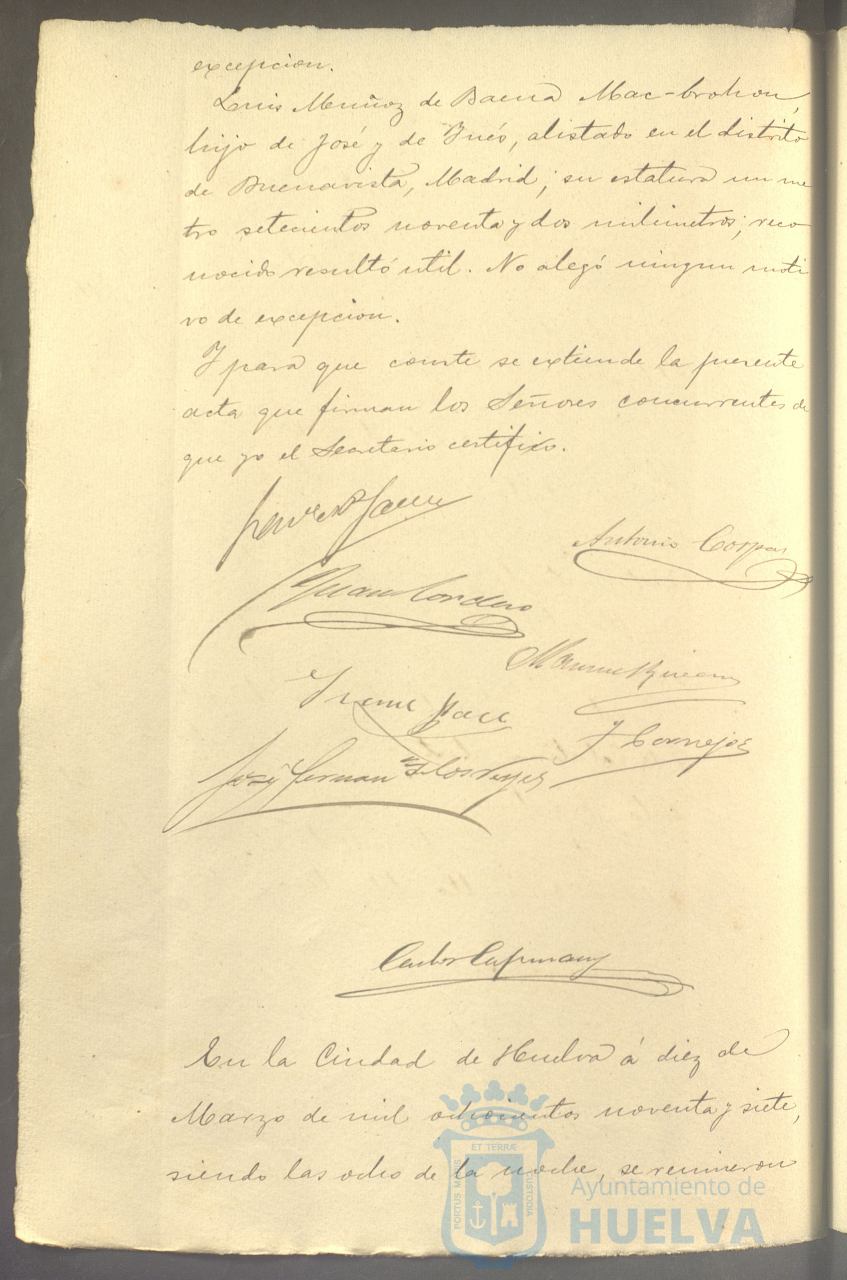 excepcion.
Luis Muñoz de Baena Mac-brohon,
hijo de José y de Inés, alistado en el distrito
de Buenavista, Madrid; su estatura un me
tro setecientos noventa y dos milimetros; reco
nocido resultó util. No alegó ningun moti
vo de excepcion.
Y para que conste se extiende la presente
acta que firman los Señores concurrentes de
que yo el Secretario certifico.
Antonio Corpas
Juan Cordero
J Cornejos
José Fernan de los Reyes
En la Ciudad de Huelva á diez de
Marzo de mil ochocientos noventa y siete,
siendo las ocho de la noche, se reunieron
ET TERRÆ
PORTUS MARIS
CUSTODIA
Ayuntamiento de
HUELVA